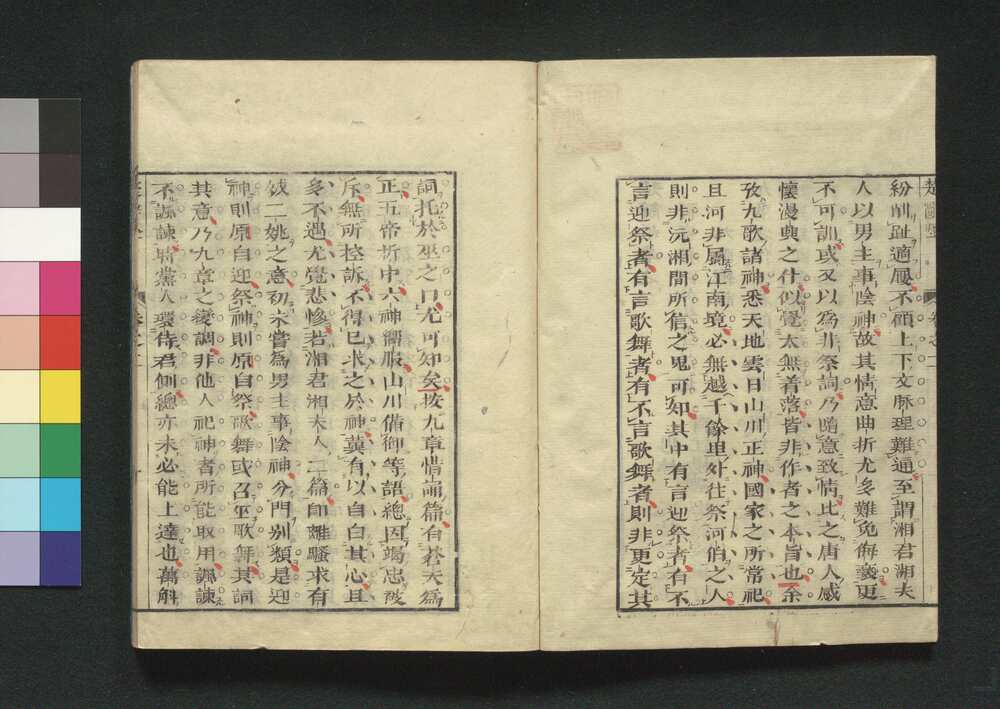 紛削趾適屨不顧上下文脉理難通至謂湘君湘夫
人以男主事陰神故其情意曲折尤多難免侮褻更
不可訓或又以為非祭詞乃隨意致情比之唐人感
懷漫興之什似覺太無着落皆非作者之本旨也余
攷九歌諸神悉天地雲日山川正神國家之所常祀
且河非屬江南境必無越千餘里外往祭河伯之人
則非沅湘間所信之鬼可知其中有言迎祭者有不
言迎祭者有言歌舞者有不言歌舞者則非更定其
詞托於巫之口尤可知矣按九章惜誦篇有蒼天為
正五帝折中六神嚮服山川備御等語總因竭忠被
斥無所控訴不得已求之於神冀有以自白其心且
多不遇尤覺悲慘若湘君湘夫人二篇即離騷求有
娀二姚之意初未嘗為男主事陰神分門別類是迎
神則原自迎祭神則原自祭歌舞或召巫歌舞其詞
其意乃九章之變調非他人祀神者所能取用諷諫
不諷諫時黨人環侍君側總亦未必能上達也萬斛